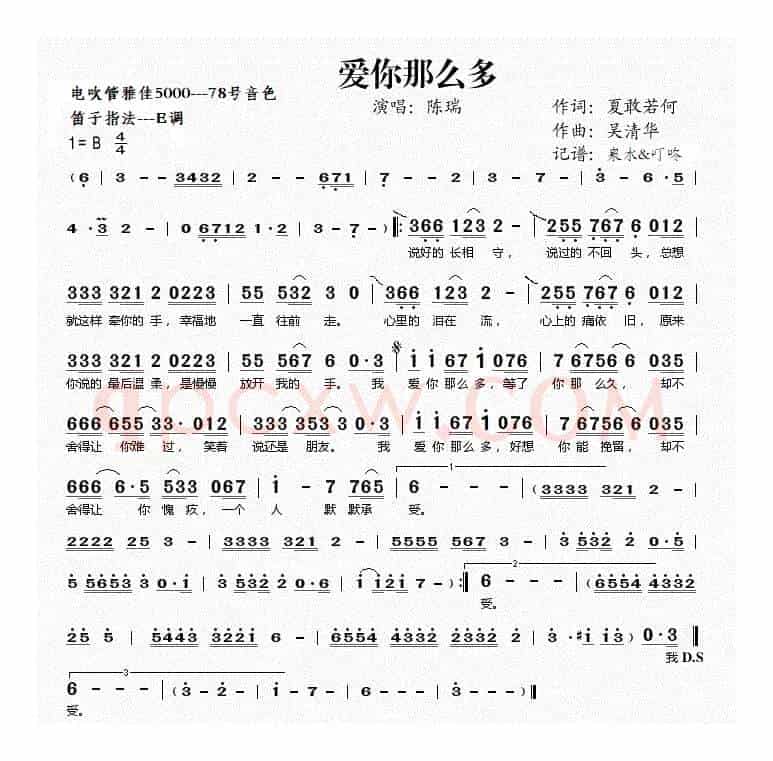 爱你那么多
电吹管雅佳5000---78号音色
演唱：陈瑞
作词：夏敢若何
笛子指法---E调
作曲：吴清华
1= B 4/4
记谱：泉水&叮咚
(6 | 3 - - 3432 | 2 - - 671 | 7 - - 2 | 3 - 7 - | 3 - 6 · 5
4 · 3 2 - | 0 6712 1 · 2 | 3 - 7 - ) ‖: 366 123 2 - | 255 767 6 012 |
说好的 长相 守， 说过的 不回 头，总想
333 321 2 0223 | 55 532 3 0 | 366 123 2 - | 255 767 6 012 |
就这样 牵你的 手，幸福地 一直 往前 走。 心里的 泪在 流， 心上的 痛依 旧，原来
333 321 2 0223 | 55 567 6 0·3 | i i 67 i 076 | 7 67566 0 35 |
你说的 最后温 柔，是慢慢 放开 我的 手。我 爱 你 那么 多，等了 你 那 么久， 却不
666 655 33· 012 | 333 353 3 0·3 | i i 67 i 076 | 7 67566 035 |
舍得让 你难 过，笑着 说还是 朋友。 我 爱 你 那么 多，好想 你 能 挽留， 却不
666 6·5 533 067 | i - 7 765 | 6 - - | (3333 321 2 |
1
舍得让 你 愧 疚，一个 人 默 默承 受。
2222 25 3 - | 3333 321 2 - | 5555 5 567 3 - | 3 532 2 0·5 |
5 5653 3 0·i | 3 532 2 0·6 | i i2i 7 - ) :‖ 6 - - (6554 4332
2
受。
25 5 | 5443 3221 6 - - | 6554 4332 2332 2 - | 3 · #i i3) 0·3 ‖
我 D.S
3
6 - - | (3 - 2 - | i - 7 - | 6 - 2 - | 3 - - - ) ‖
受。
qpcxw.COM